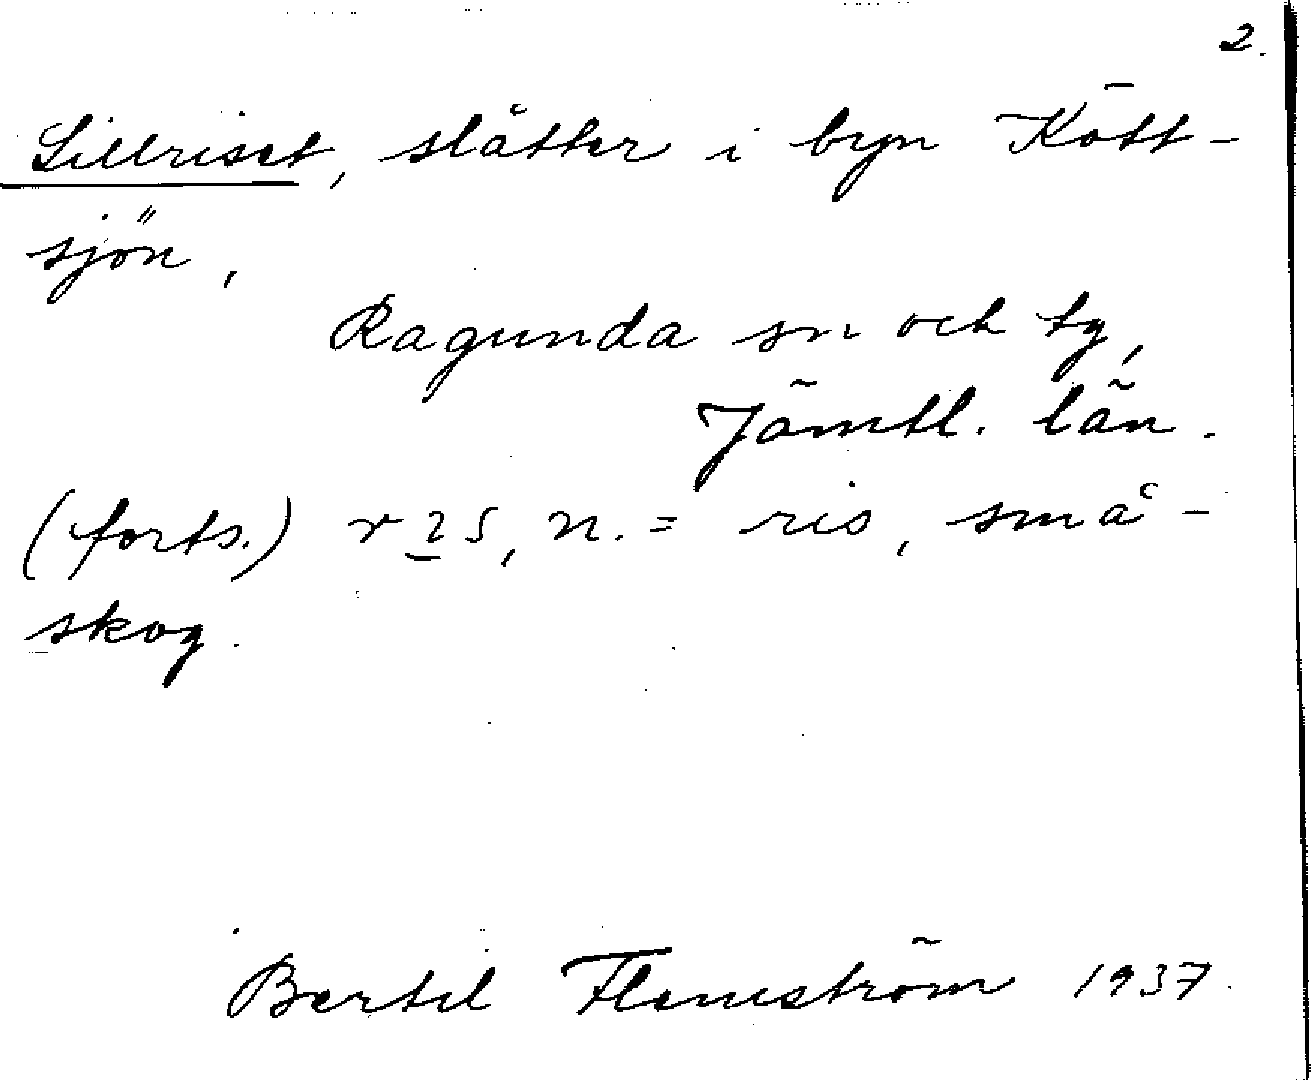 2.
Lillriset, slåtter i byn Kött-
sjön,
Ragunda sn och tg,
Jämtl. län.
(forts.) n. = ris, små-
skog.
Bertil Flemström 1937.